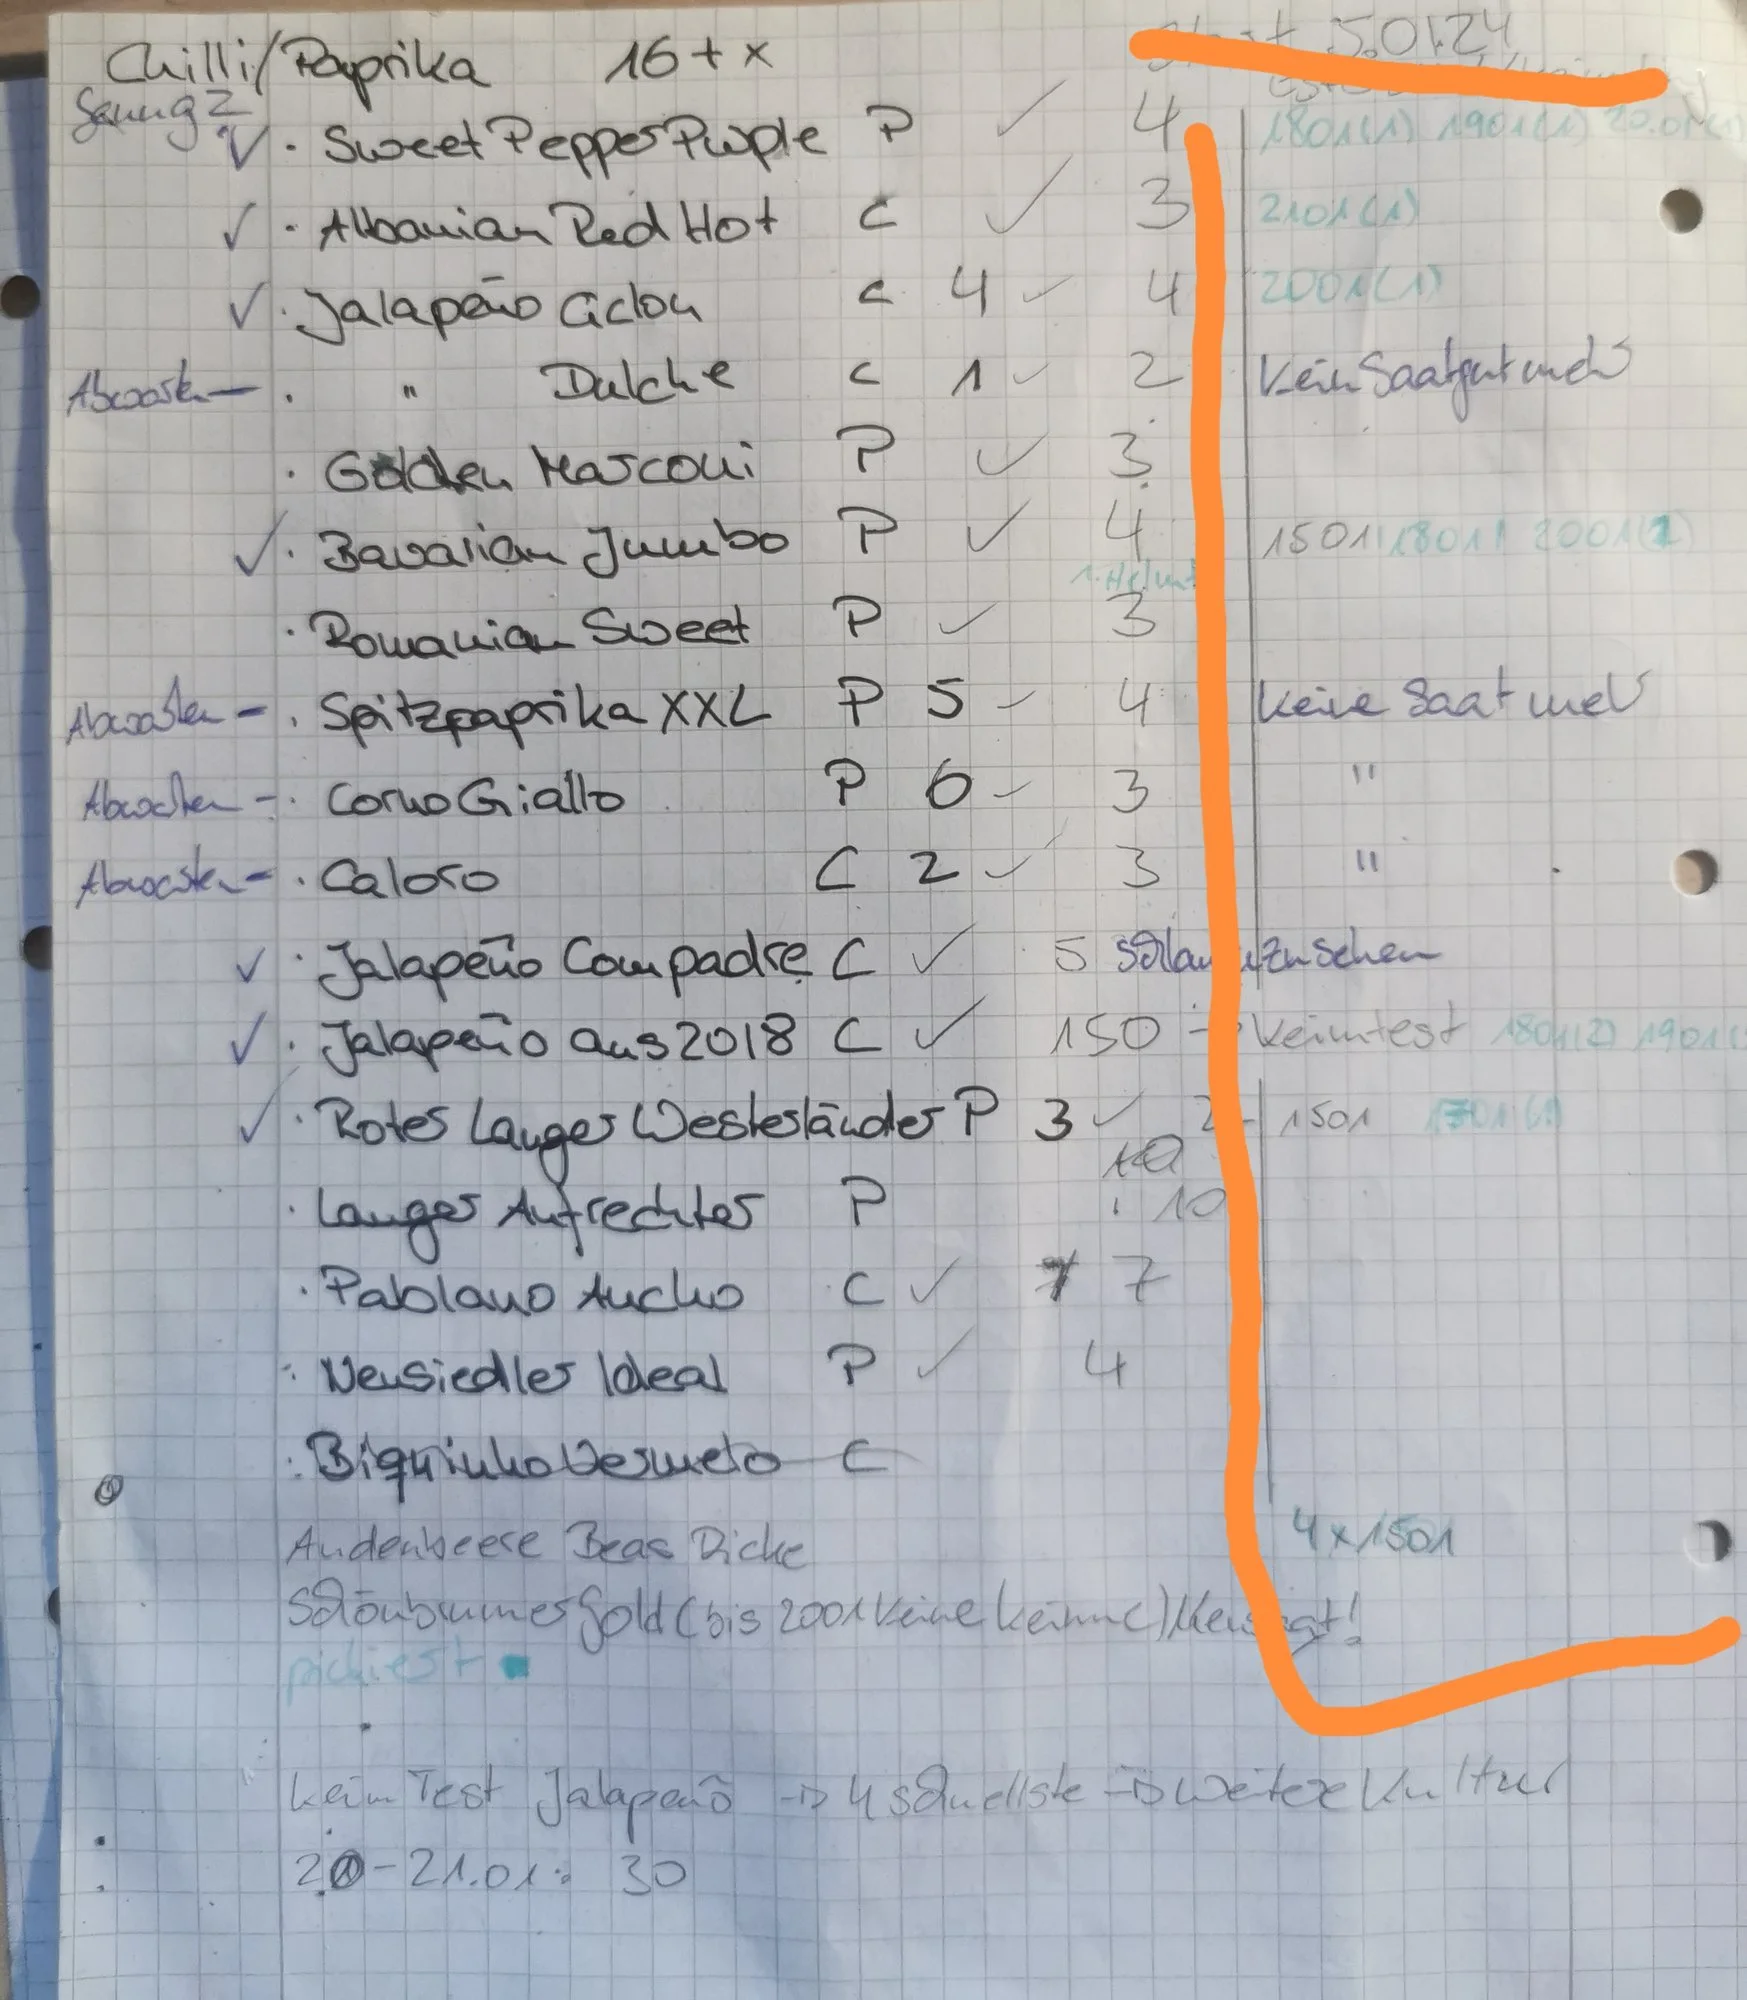 Chilli/Paprika 16 + x 5.01.24
✓ · Sweet Pepper Purple P ✓ 4 1801(1) 1901(1) 20.01(1)
✓ · Albanian Red Hot C ✓ 3 2101(1)
✓ · Jalapeño Ciclon C 4 ✓ 4 2001(1)
Abwarten – · " Dulche C 1 ✓ 2 Kein Saatgut mehr
· Golden Marconi P ✓ 3
✓ · Bavarian Jumbo P ✓ 4 1501 1801 2001
· Romanian Sweet P ✓ 3
Abwarten – · Spitzpaprika XXL P 5 ✓ 4 Keine Saat mehr
Abwarten – · Corno Giallo P 6 ✓ 3 "
Abwarten – · Caloro C 2 ✓ 3 "
✓ · Jalapeño Compadre C ✓ 5 zu sehen
✓ · Jalapeño aus 2018 C ✓ 150 → Keimtest 1801(2) 1901(
✓ · Rotes Langes Westerländer P 3 ✓ 2 1501 1701(1)
· Langer Aufrechter P 10
· Pablano Ancho C ✓ 7
· Neusiedler Ideal P ✓ 4
· Biquinho Vermelo C
Andenbeere Beas Dicke 4 x 1501
Schönbrunner Gold (bis 2001 keine Keime) Neusaat!
pickiest
Keim Test Jalapeño → 4 schnellste → weitere Kultur
20-21.01: 30